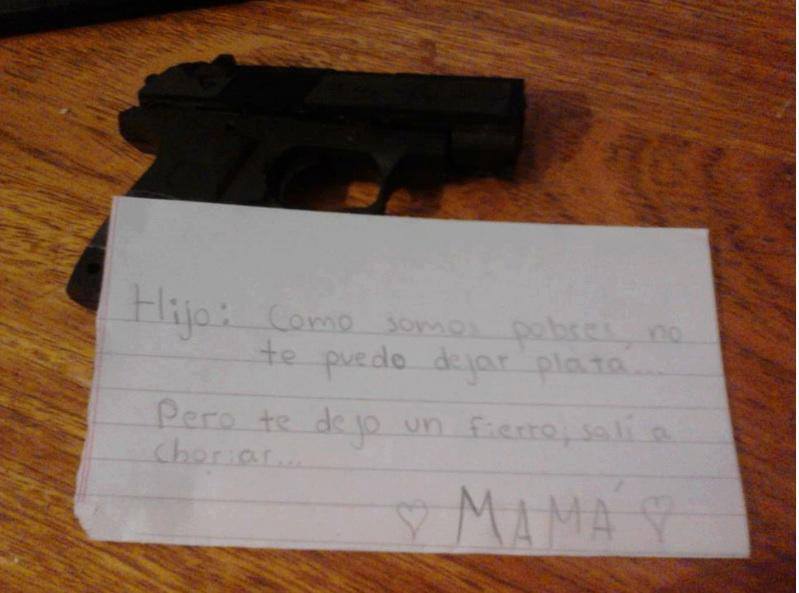 Hijo: Como somos pobres, no
te puedo dejar plata...
Pero te dejo un fierro, salí a
choriar...
♡ MAMÁ ♡